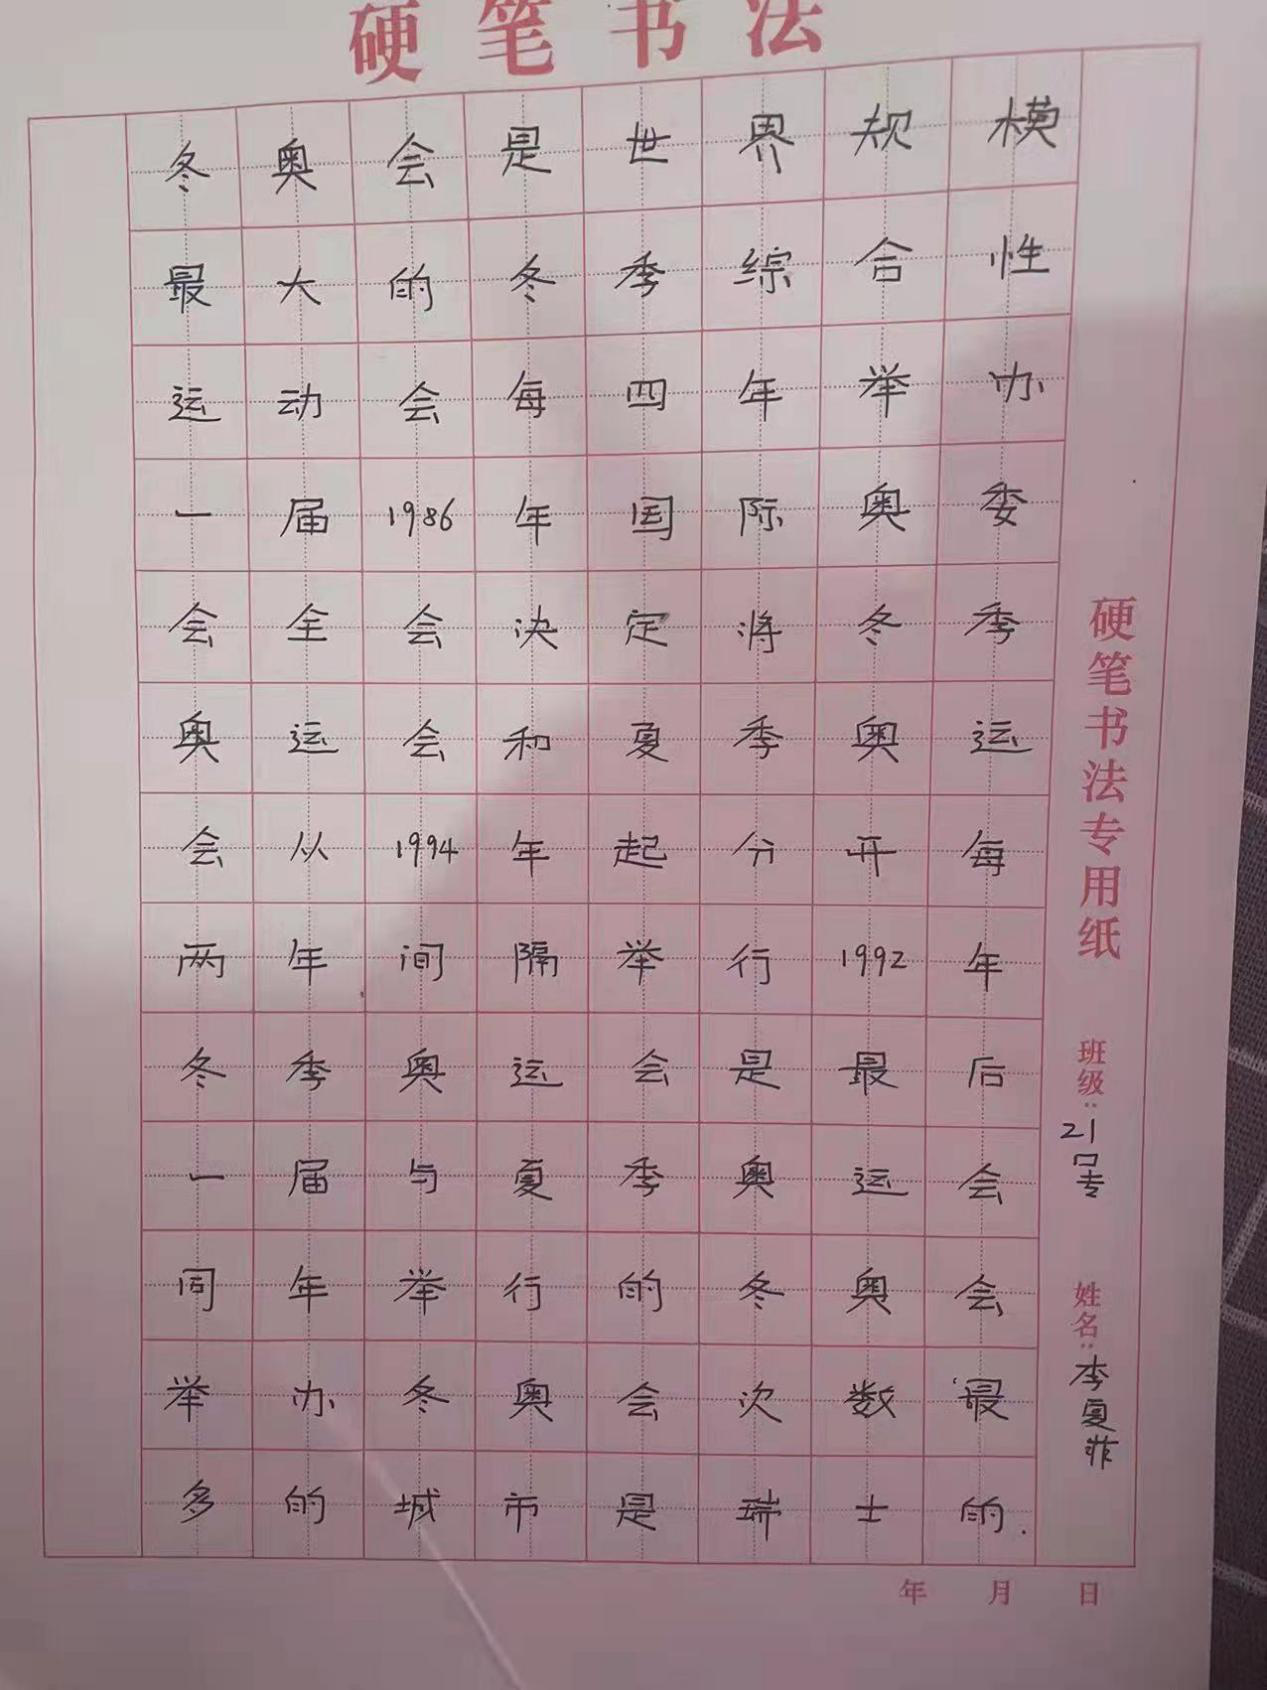 硬笔书法
冬奥会是世界规模
最大的冬季综合性
运动会每四年举办
一届1986年国际奥委
会全会决定将冬季
奥运会和夏季奥运
会从1994年起分开每
两年间隔举行1992年
冬季奥运会是最后
一届与夏季奥运会
同年举行的冬奥会
举办冬奥会次数最
多的城市是瑞士的.
硬笔书法专用纸
班级:21口专
姓名:李夏菲
年 月 日